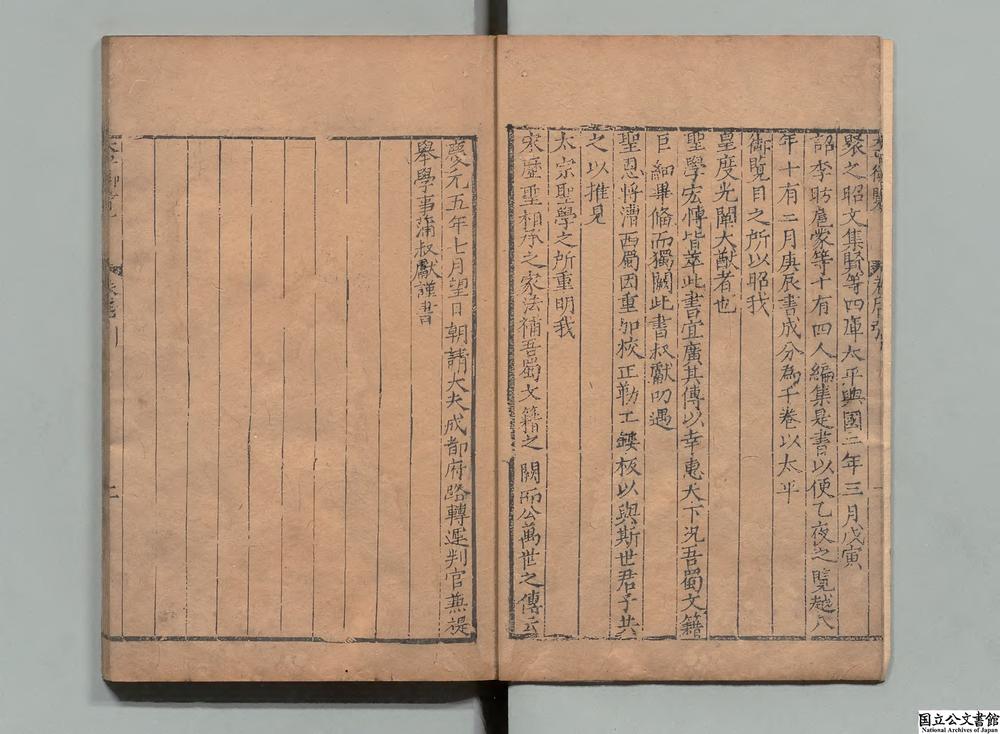 聚之昭文集賢等四庫太平興國二年三月戊寅
詔李昉扈蒙等十有四人編集是書以便乙夜之覽越八
年十有二月庚辰書成分為千卷以太平
御覽目之所以昭我
皇度光闡大猷者也
聖學宏博皆萃此書宜廣其傳以幸惠天下況吾蜀文籍
巨細畢備而獨闕此書叔獻叨遇
聖恩將漕西蜀因重加校正勒工鏤板以與斯世君子共
之以推見
太宗聖學之所重明我
宋歷聖相承之家法補吾蜀文籍之闕而公萬世之傳云
慶元五年七月望日朝請大夫成都府路轉運判官兼提
舉學事蒲叔獻謹書
二
国立公文書館
National Archives of Japan